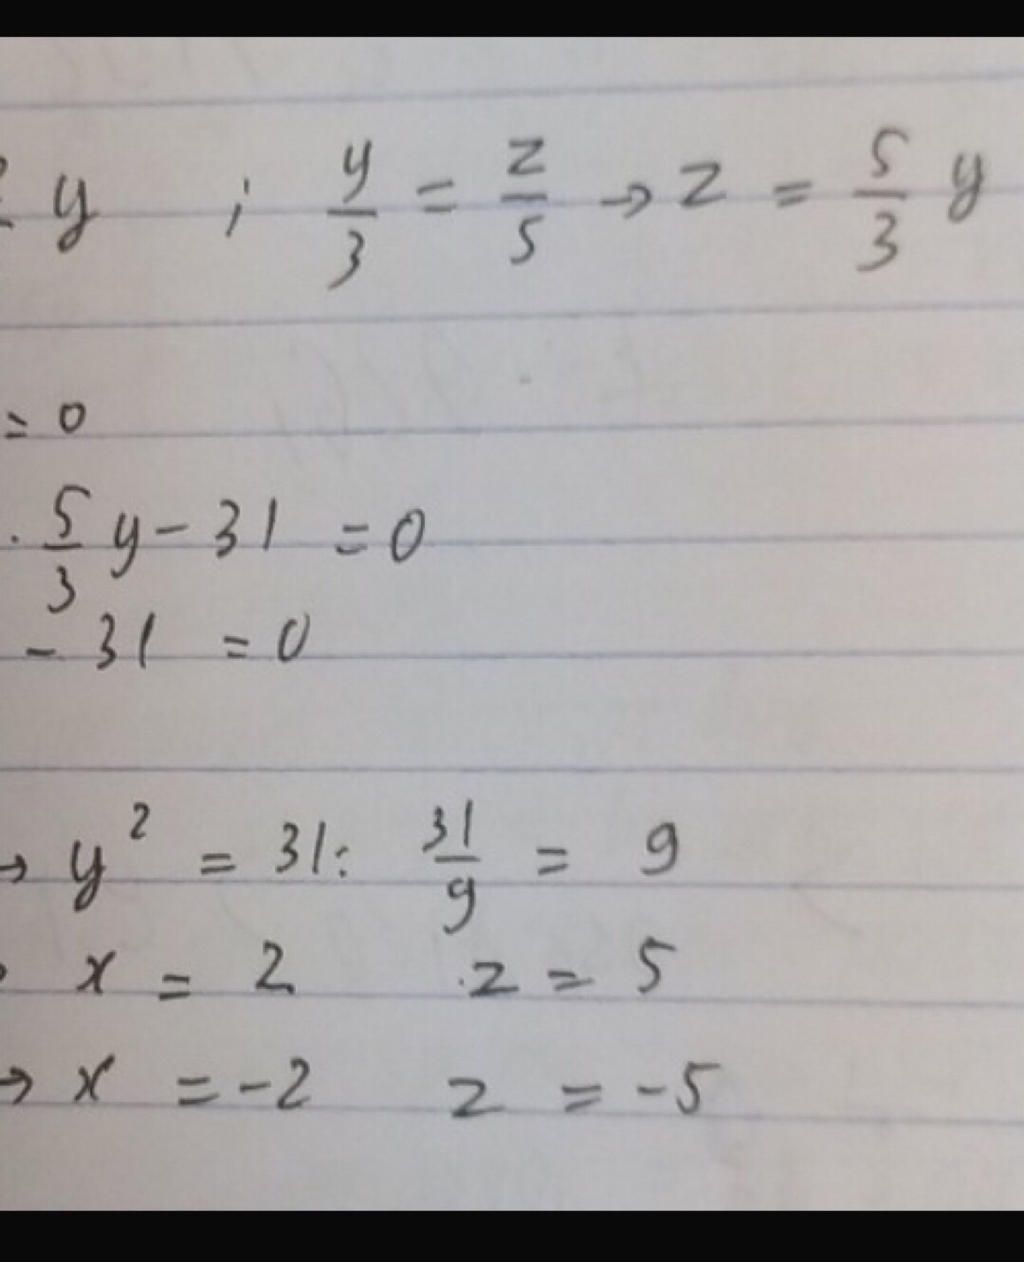 y ; y/3 = z/5 → z = 5/3 y
= 0
. 5/3 y - 31 = 0
- 31 = 0
→ y² = 31 : 31/9 = 9
x = 2 z = 5
→ x = -2 z = -5